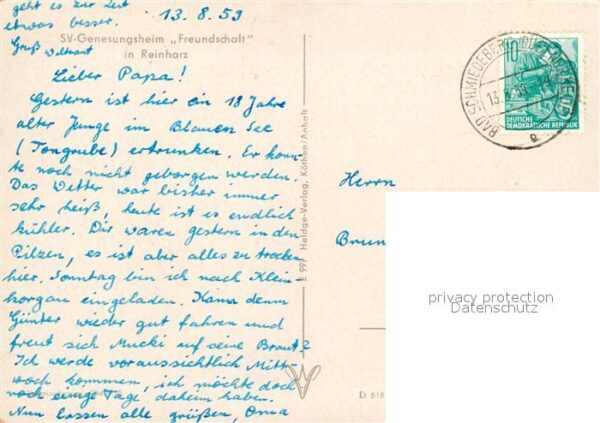 geht es zur Zeit
etwas besser.
Gruß Waltraut
13.8.59
SV-Genesungsheim „Freundschaft"
in Reinharz
Lieber Papa!
Gestern ist hier ein 18 Jahre
alter Junge im Blauen See
(Tongrube) ertrunken. Er konn-
te noch nicht geborgen werden.
Das Wetter war bisher immer
sehr heiß, heute ist es endlich
kühler. Wir waren gestern in den
Pilzen, es ist aber alles zu trocken
hier. Sonntag bin ich nach Klein-
korgau eingeladen. Kann denn
Günter wieder gut fahren und
freut sich Mucki auf seine Braut?
Ich werde voraussichtlich Mitt-
woch kommen, ich möchte doch
noch einge Tage daheim haben.
Nun lassen alle grüßen, Oma
E 997 Heldge-Verlag, Köthen/Anhalt
10
DEUTSCHE
DEMOKRATISCHE REPUBLIK
BAD SCHMIEDEBERG
13.
e
Herrn
Brun
privacy protection
Datenschutz
D 618